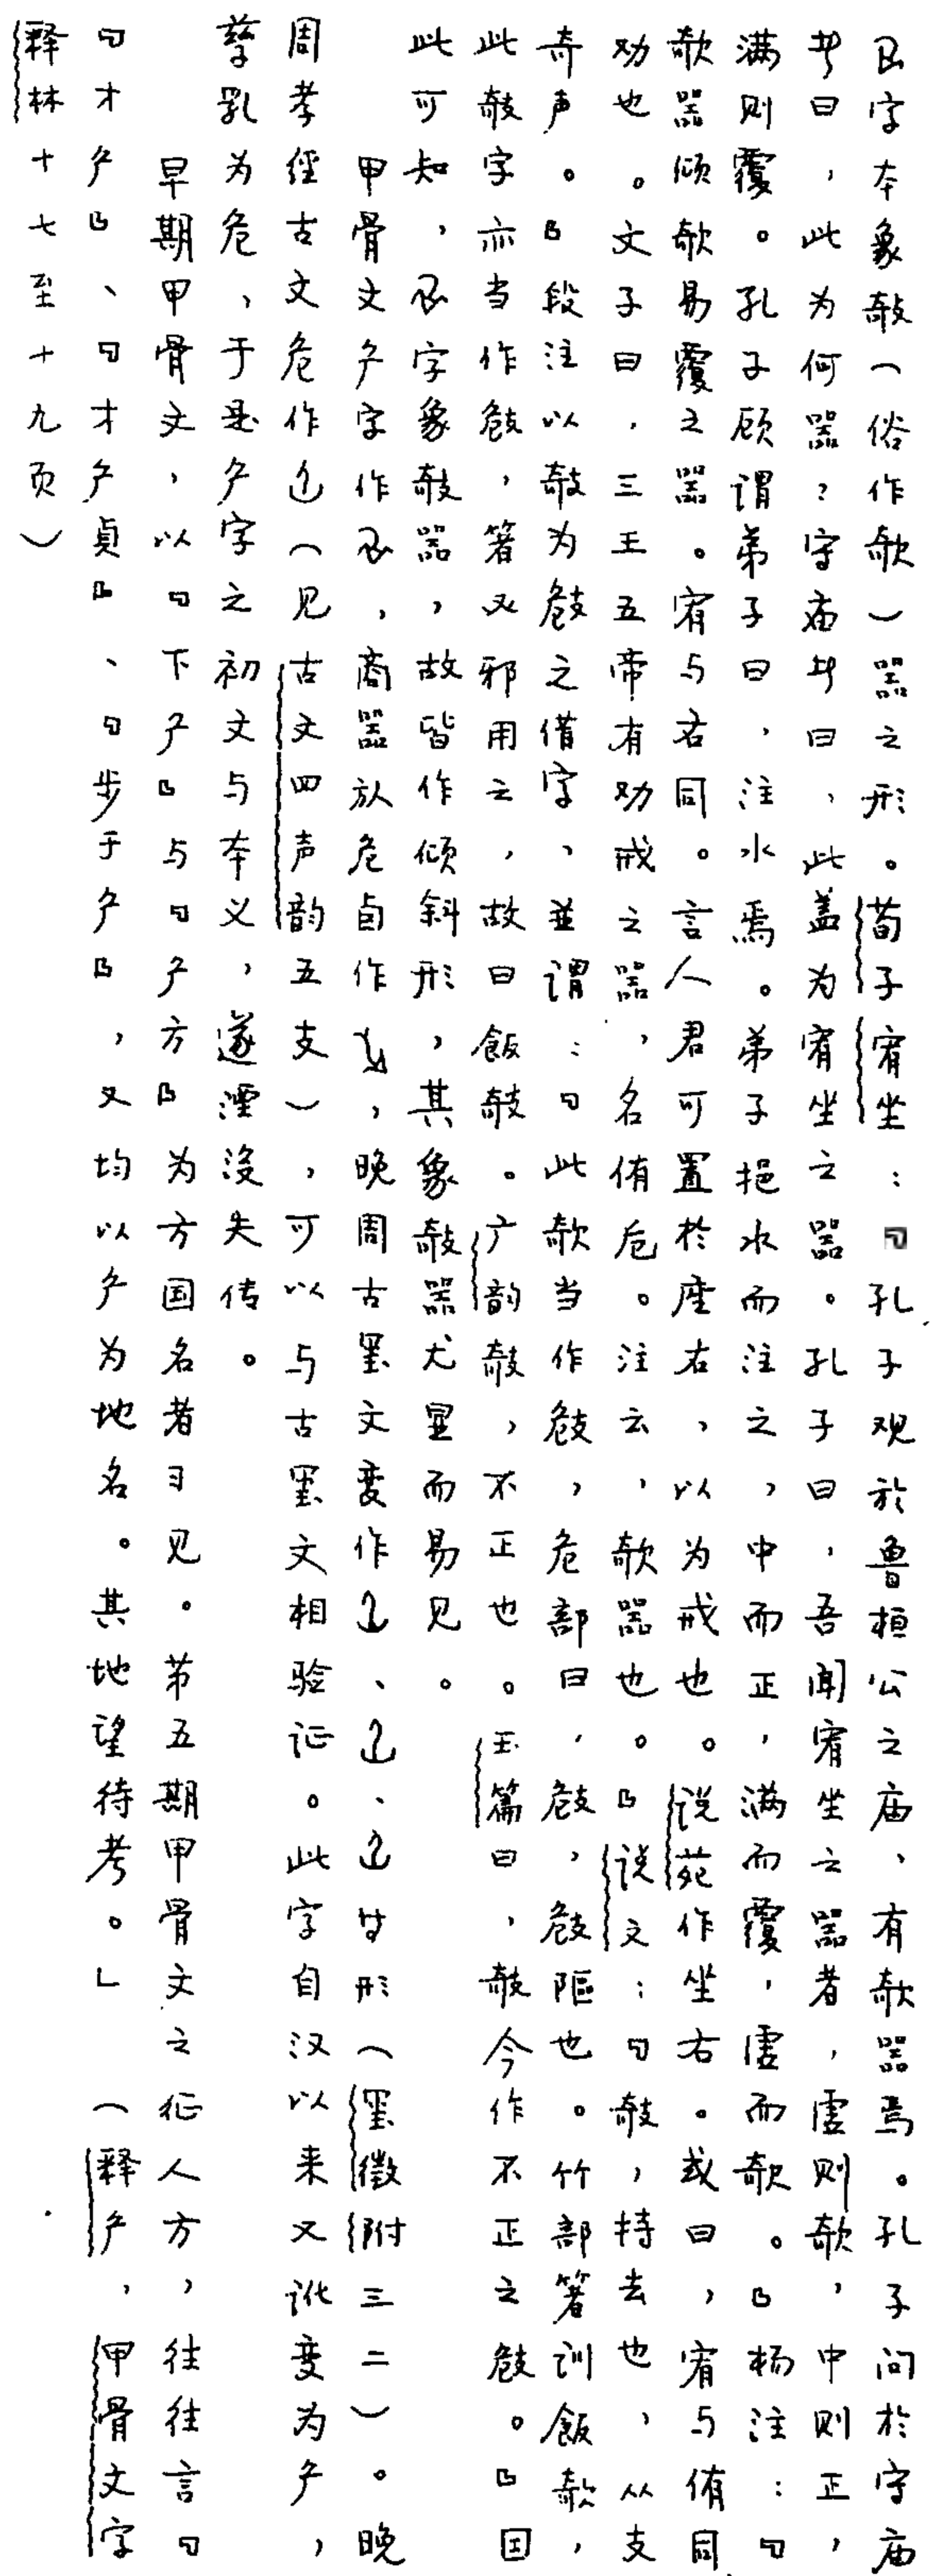 字本象攲（俗作欹）器之形。荀子宥坐：「孔子观於鲁桓公之庙，有欹器焉。孔子问於守庙
者曰，此为何器？守庙者曰，此盖为宥坐之器。孔子曰，吾闻宥坐之器者，虚则欹，中则正，
满则覆。孔子顾谓弟子曰，注水焉。弟子挹水而注之，中而正，满而覆，虚而欹。」杨注：「
欹器倾欹易覆之器。宥与右同。言人君可置於座右，以为戒也。说苑作坐右。或曰，宥与侑同
劝也。文子曰，三王五帝有劝戒之器，名侑卮。注云，欹器也。」说文：「攲，持去也，从支
奇声。」段注以攲为㩻之借字，並谓：「此欹当作㩻，危部曰，㩻，㩻䧢也。竹部箸训飯欹，
此攲字亦当作㩻，箸必邪用之，故曰飯攲。广韵攲，不正也。玉篇曰，攲今作不正之㩻。」因
此可知，字象攲器，故皆作倾斜形，其象攲器尤显而易见。
甲骨文⺈字作，商器放危卣作，晚周古玺文变作、、等形（玺徵附三二）。晚
周孝经古文危作（见古文四声韵五支），可以与古玺文相验证。此字自汉以来又讹变为厃，
孳乳为危，于是厃字之初文与本义，遂湮没失传。
早期甲骨文，以「下厃」与「厃方」为方国名者习见。第五期甲骨文之征人方，往往言「
「才厃」、「才厃貞」、「步于厃」，又均以厃为地名。其地望待考。」（释厃，甲骨文字
释林十七至十九页）